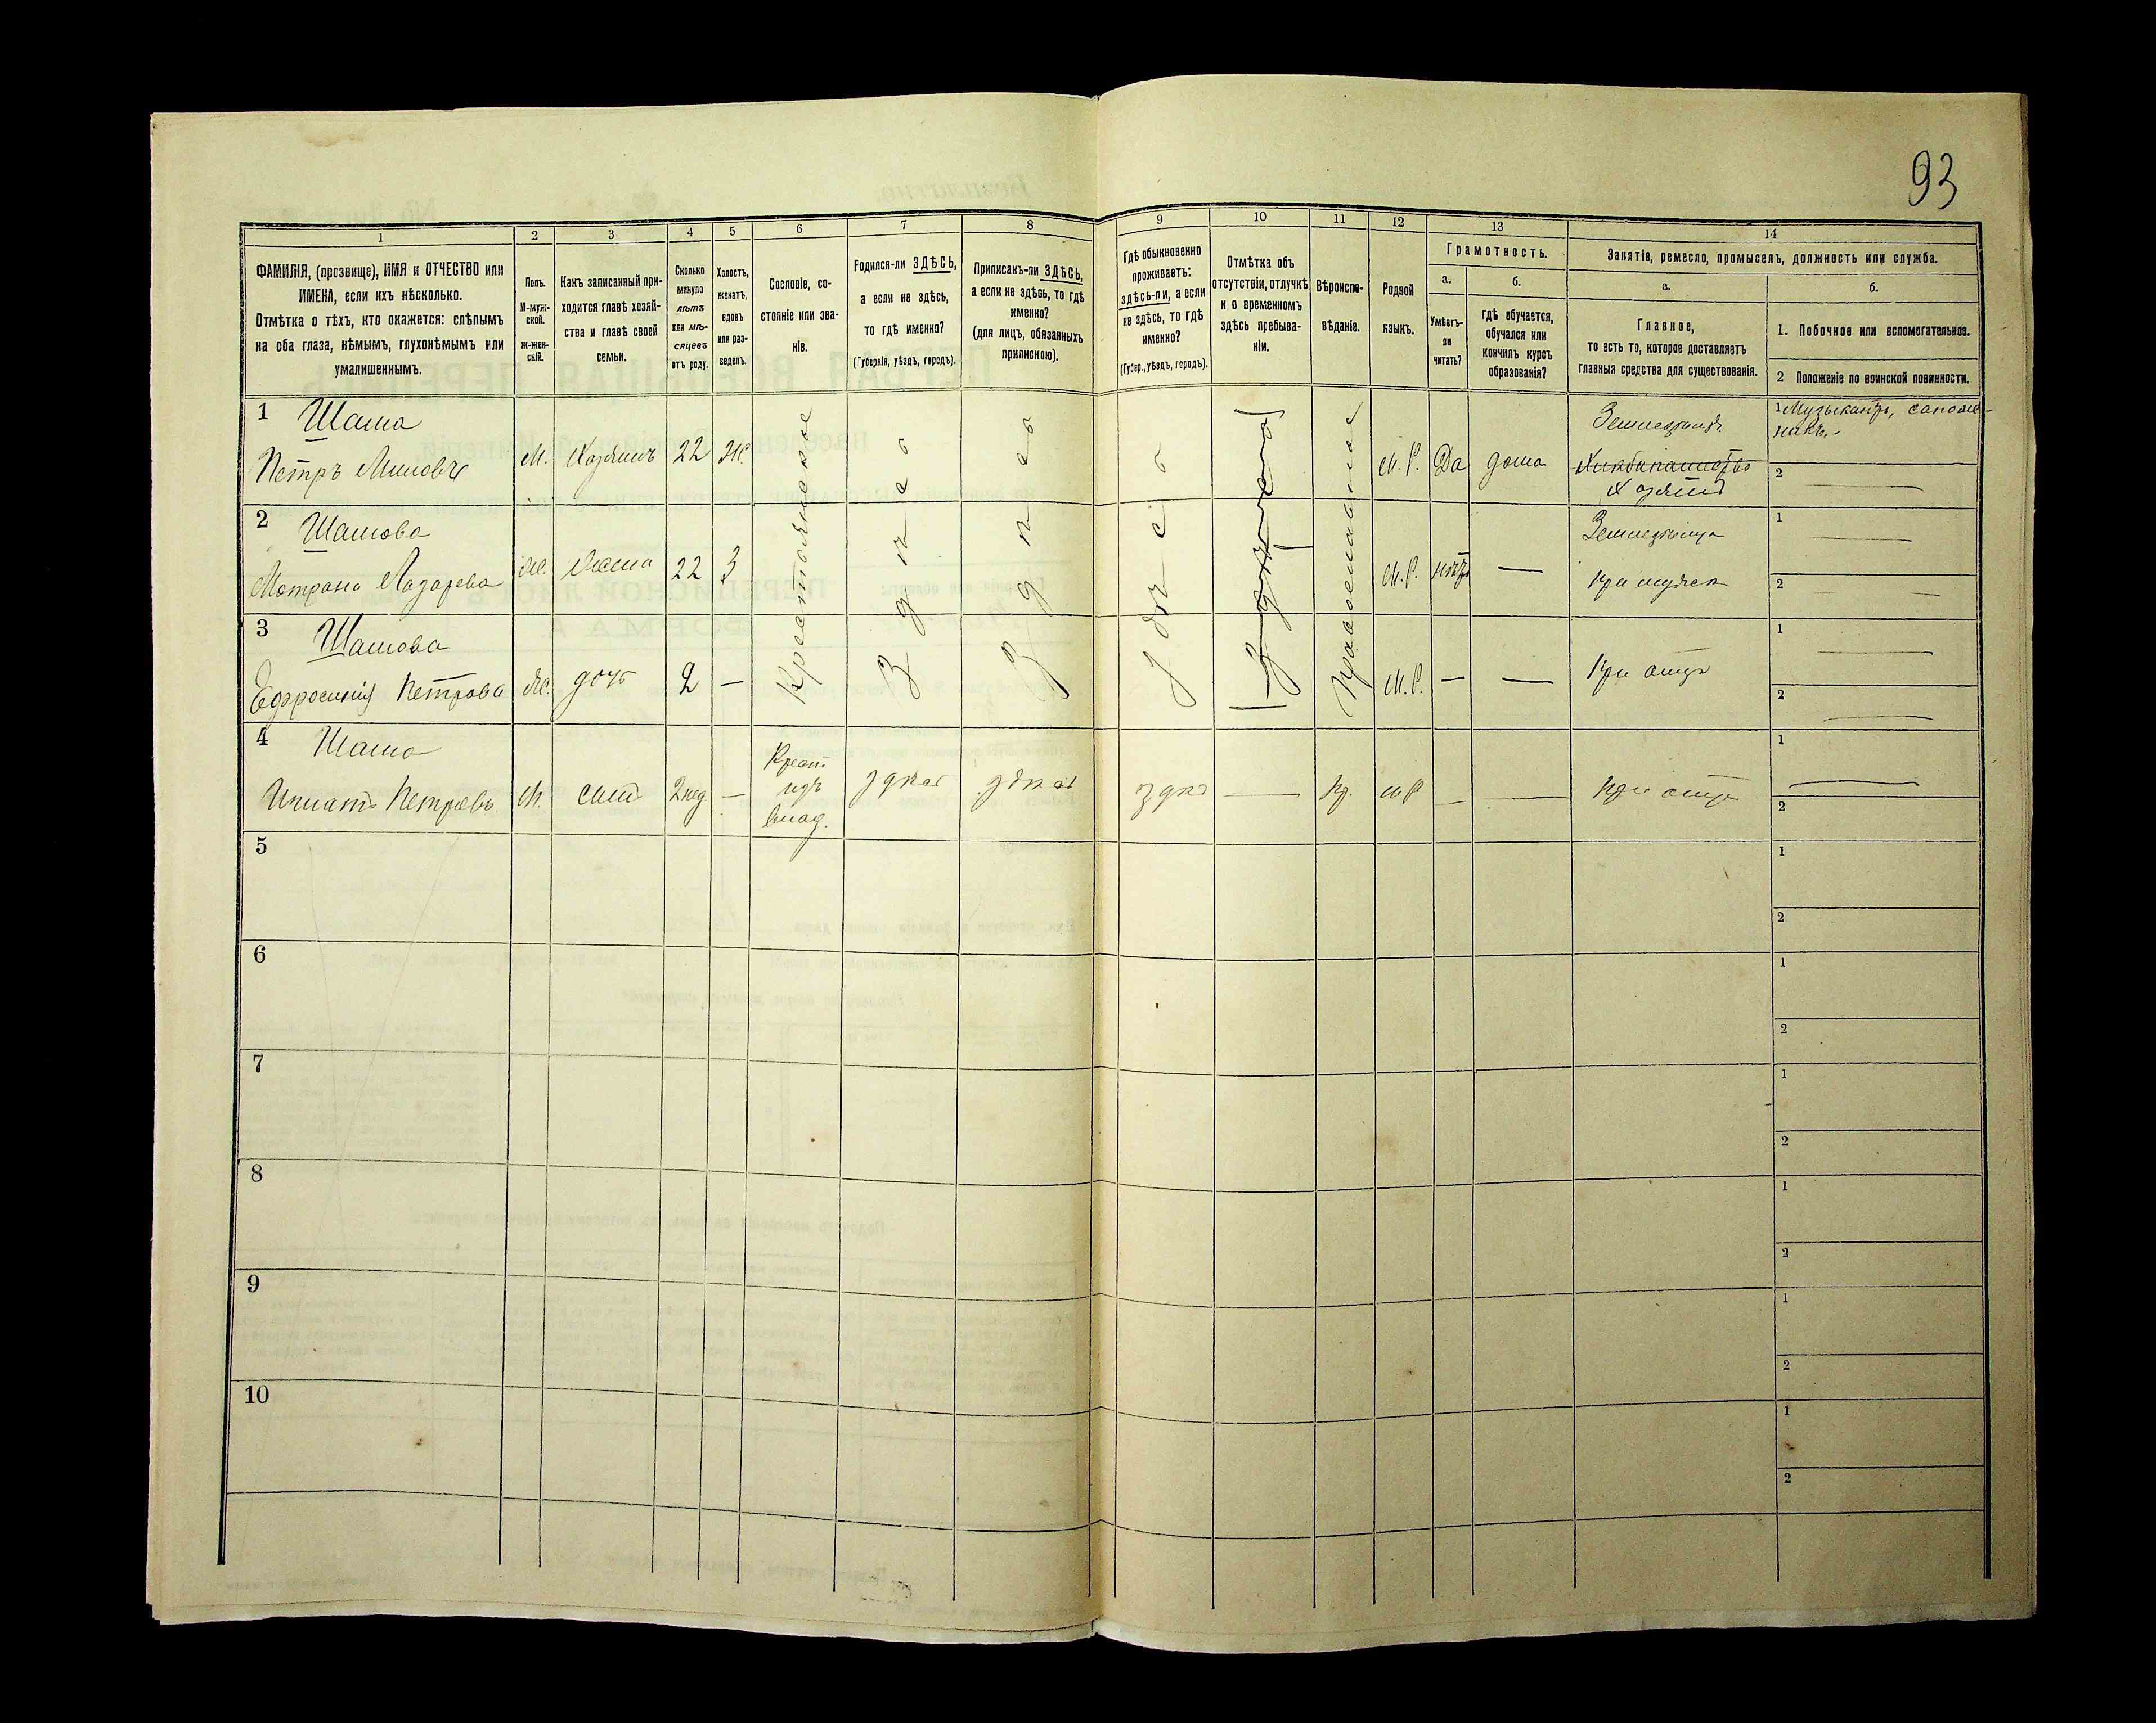 93
1
2
3
4
5
6
7
8
9
10
11
12
13
14
ФАМИЛІЯ, (прозвище), ИМЯ и ОТЧЕСТВО или
ИМЕНА, если ихъ нѣсколько.
Отмѣтка о тѣхъ, кто окажется: слѣпымъ
на оба глаза, нѣмымъ, глухонѣмымъ или
умалишеннымъ.
Полъ.
М-муж-
ской.
Ж-жен-
скій.
Какъ записанный при-
ходится главѣ хозяй-
ства и главѣ своей
семьи.
Сколько
минуло
лѣтъ
или мѣ-
сяцевъ
отъ роду.
Холостъ,
женатъ,
вдовъ
или раз-
веденъ.
Сословіе, со-
стояніе или зва-
ніе.
Родился-ли ЗДѢСЬ,
а если не здѣсь,
то гдѣ именно?
(Губернія, уѣздъ, городъ).
Приписанъ-ли ЗДѢСЬ,
а если не здѣсь, то гдѣ
именно?
(для лицъ, обязанныхъ
припискою).
Гдѣ обыкновенно
проживаетъ:
здѣсь-ли, а если
не здѣсь, то гдѣ
именно?
(Губер., уѣздъ, городъ).
Отмѣтка объ
отсутствіи, отлучкѣ
и о временномъ
здѣсь пребыва-
ніи.
Вѣроиспо-
вѣданіе.
Родной
языкъ.
Грамотность.
а.
Умѣетъ-
ли
читать?
б.
гдѣ обучается,
обучался или
кончилъ курсъ
образованія?
Занятія, ремесло, промыселъ, должность или служба.
а.
Главное,
то есть то, которое доставляетъ
главныя средства для существованія.
б.
1. Побочное или вспомогательное.
2 Положеніе по воинской повинности.
1 Шама
Петръ
М.
Хозяинъ
22
Ж.
Крестьянское
здѣсь
здѣсь
здѣсь
Православное
М. Р.
Да
дома
Хозяинъ
1 Музыкантъ, сапож-
никъ.-
2
2 Шамова
Мотрона Лазарева
Ж.
Жена
22
З
М. Р.
нѣтъ
—
при мужѣ
1 —
2 —
3 Шамова
Ефросинія Петрова
Ж.
дочь
2
—
М. Р.
—
—
При отцѣ
1 —
2 —
4 Шама
Игнатъ Петровъ
М.
сынъ
2 нед.
—
Крест.
изъ
влад.
здѣсь
здѣсь
здѣсь
—
Пр.
М Р
—
—
При отцѣ
1 —
2
5
1
2
6
1
2
7
1
2
8
1
2
9
1
2
10
1
2